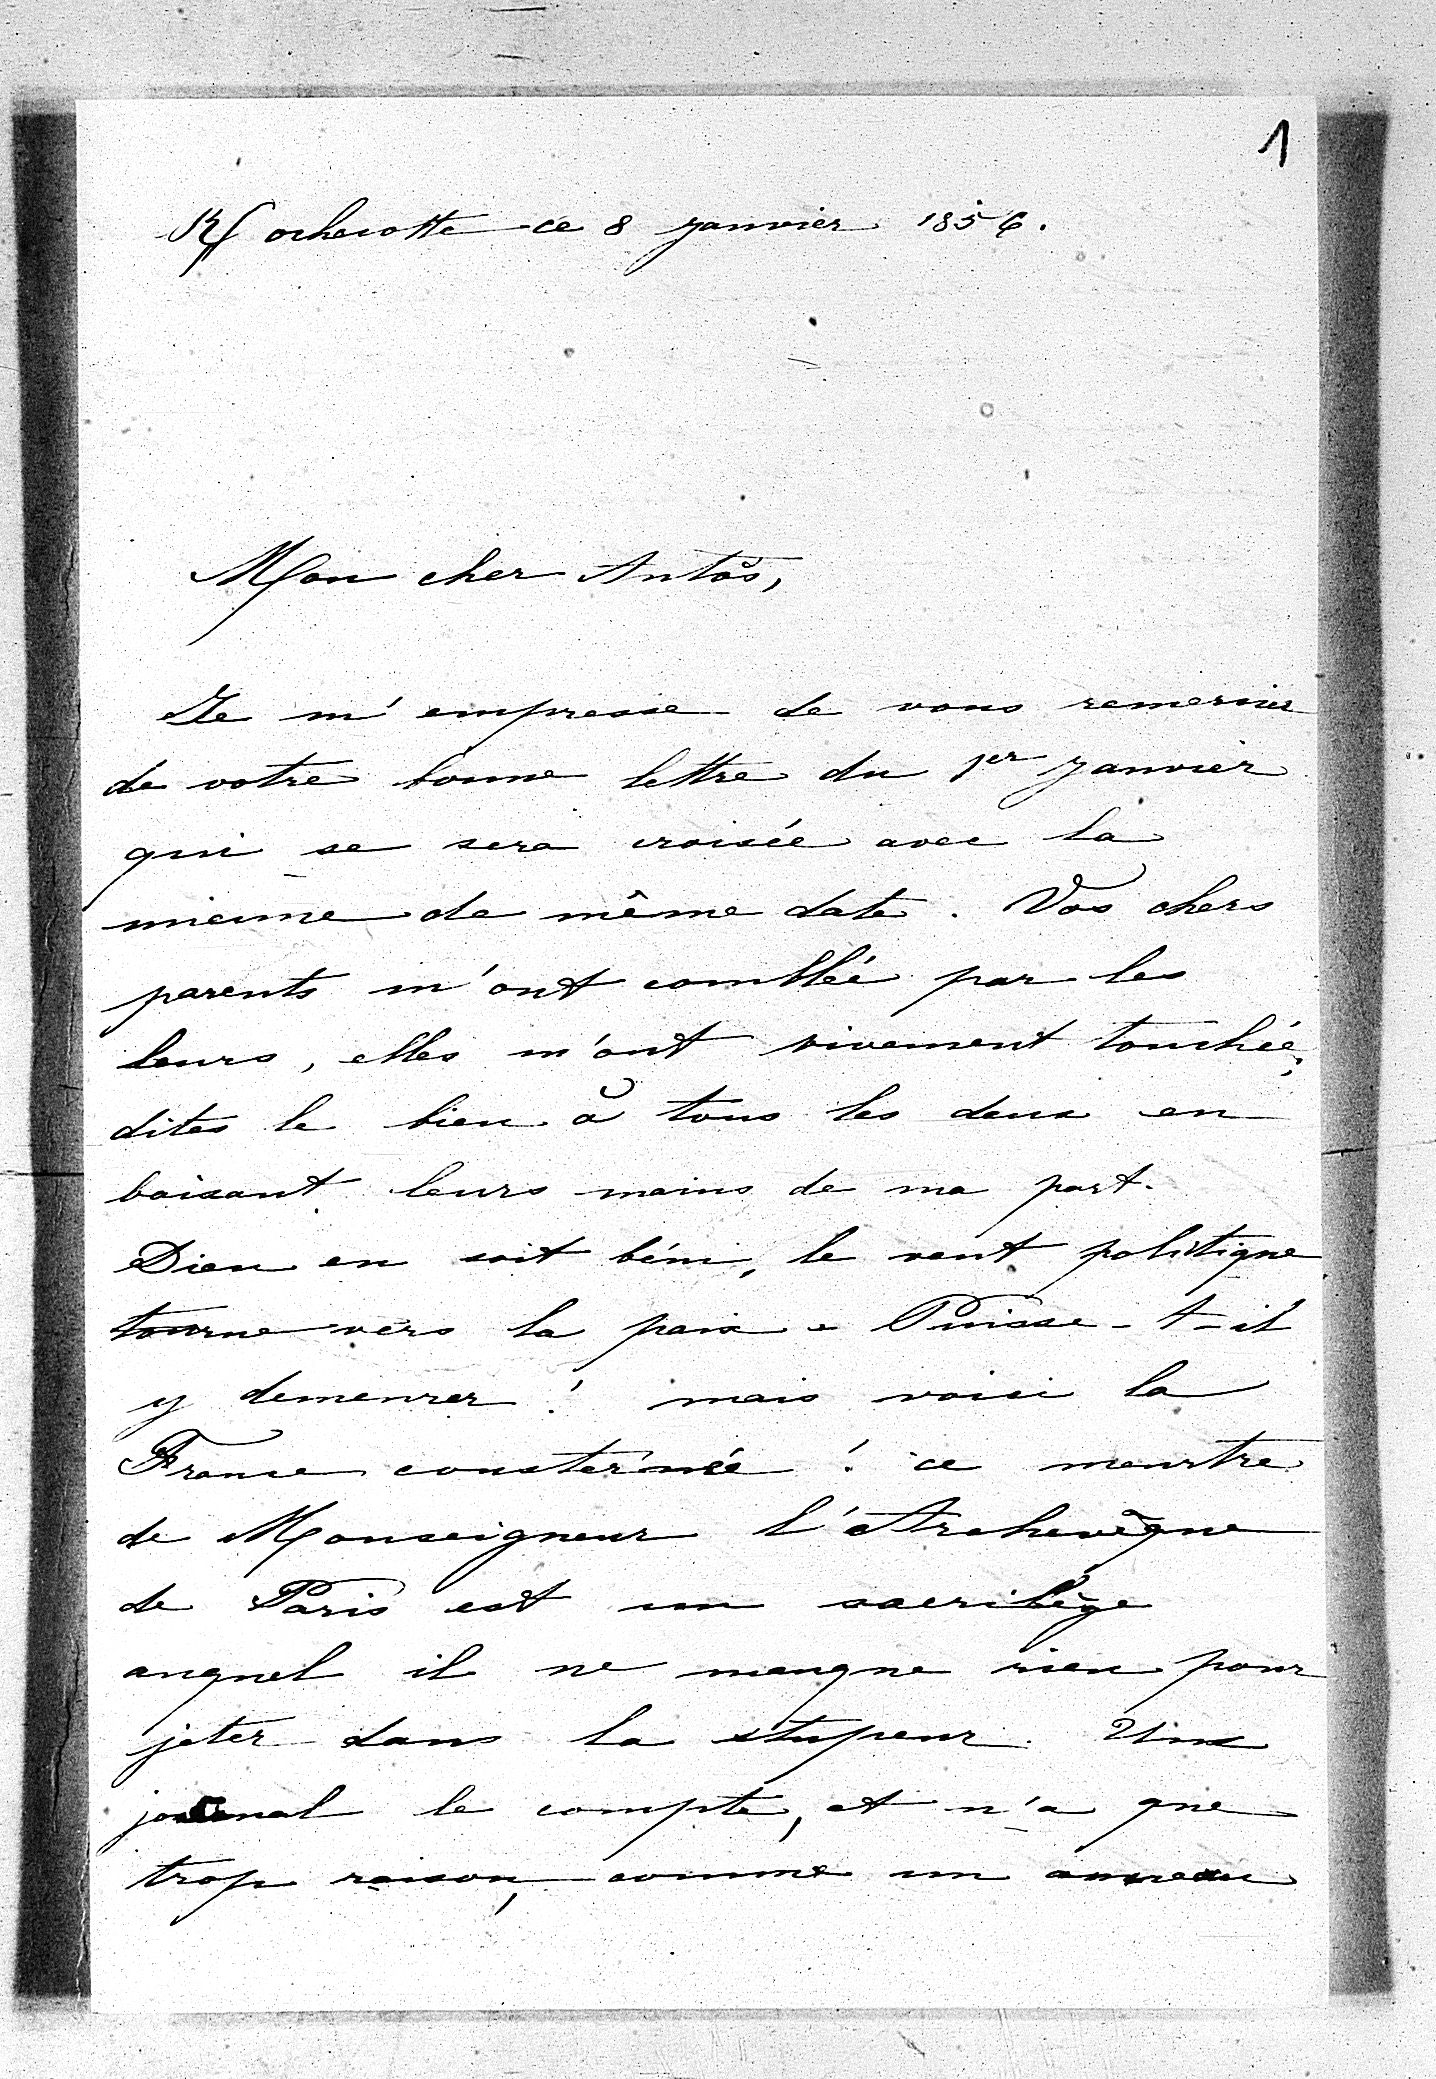 1
Rochecotte ce 8 Janvier 1856.
Mon cher Antos,
Je m'empresse de vous remercier
de votre bonne lettre du 1er Janvier
qui se sera croisée avec la
mienne de même date. Vos chers
parents m'ont comblée par les
leurs, elles m'ont vivement touchée;
dites le bien à tous les deux en
baisant leurs mains de ma part.
Dieu en soit béni, le vent politique
tourne vers la paix. Puisse-t-il
y demeurer! mais voici la
France consternée! ce meurtre
de Monseigneur l'Archevêque
de Paris est un sacrilège
auquel il ne manque rien pour
jeter dans la stupeur. Un
journal le compte, et n'a que
trop raison, comme un anneau